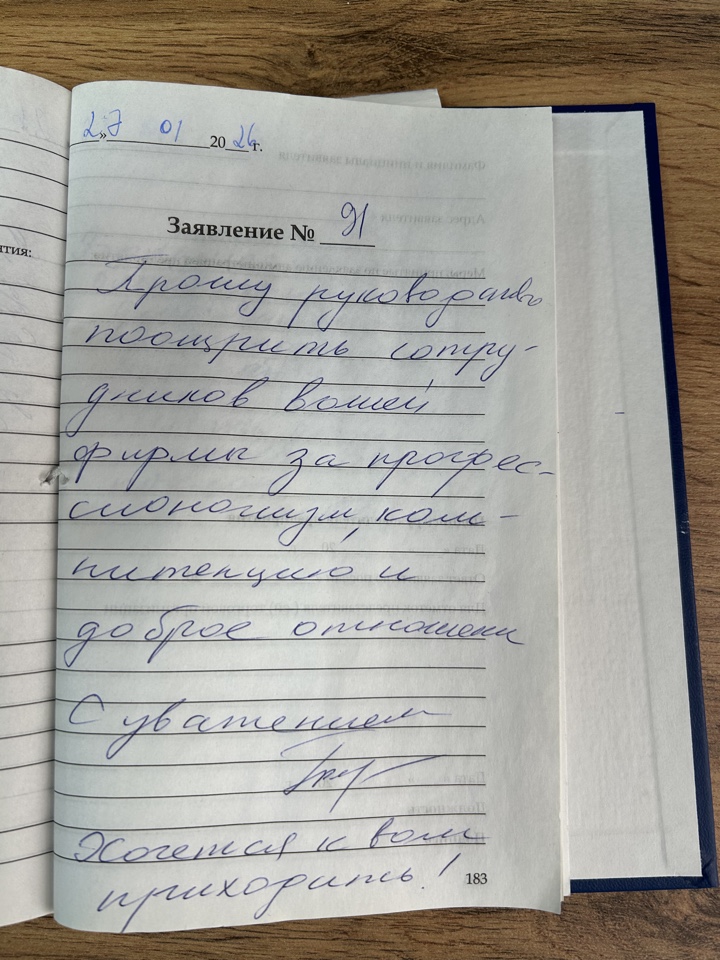 27» 01 2026 г.
Заявление № 91
ятия:
Прошу руководство
поощрить сотру-
дников вашей
фирмы за профес-
сионализм, ком-
питенцию и
доброе отношени
С уважением
Хочется к вам
приходить!
183